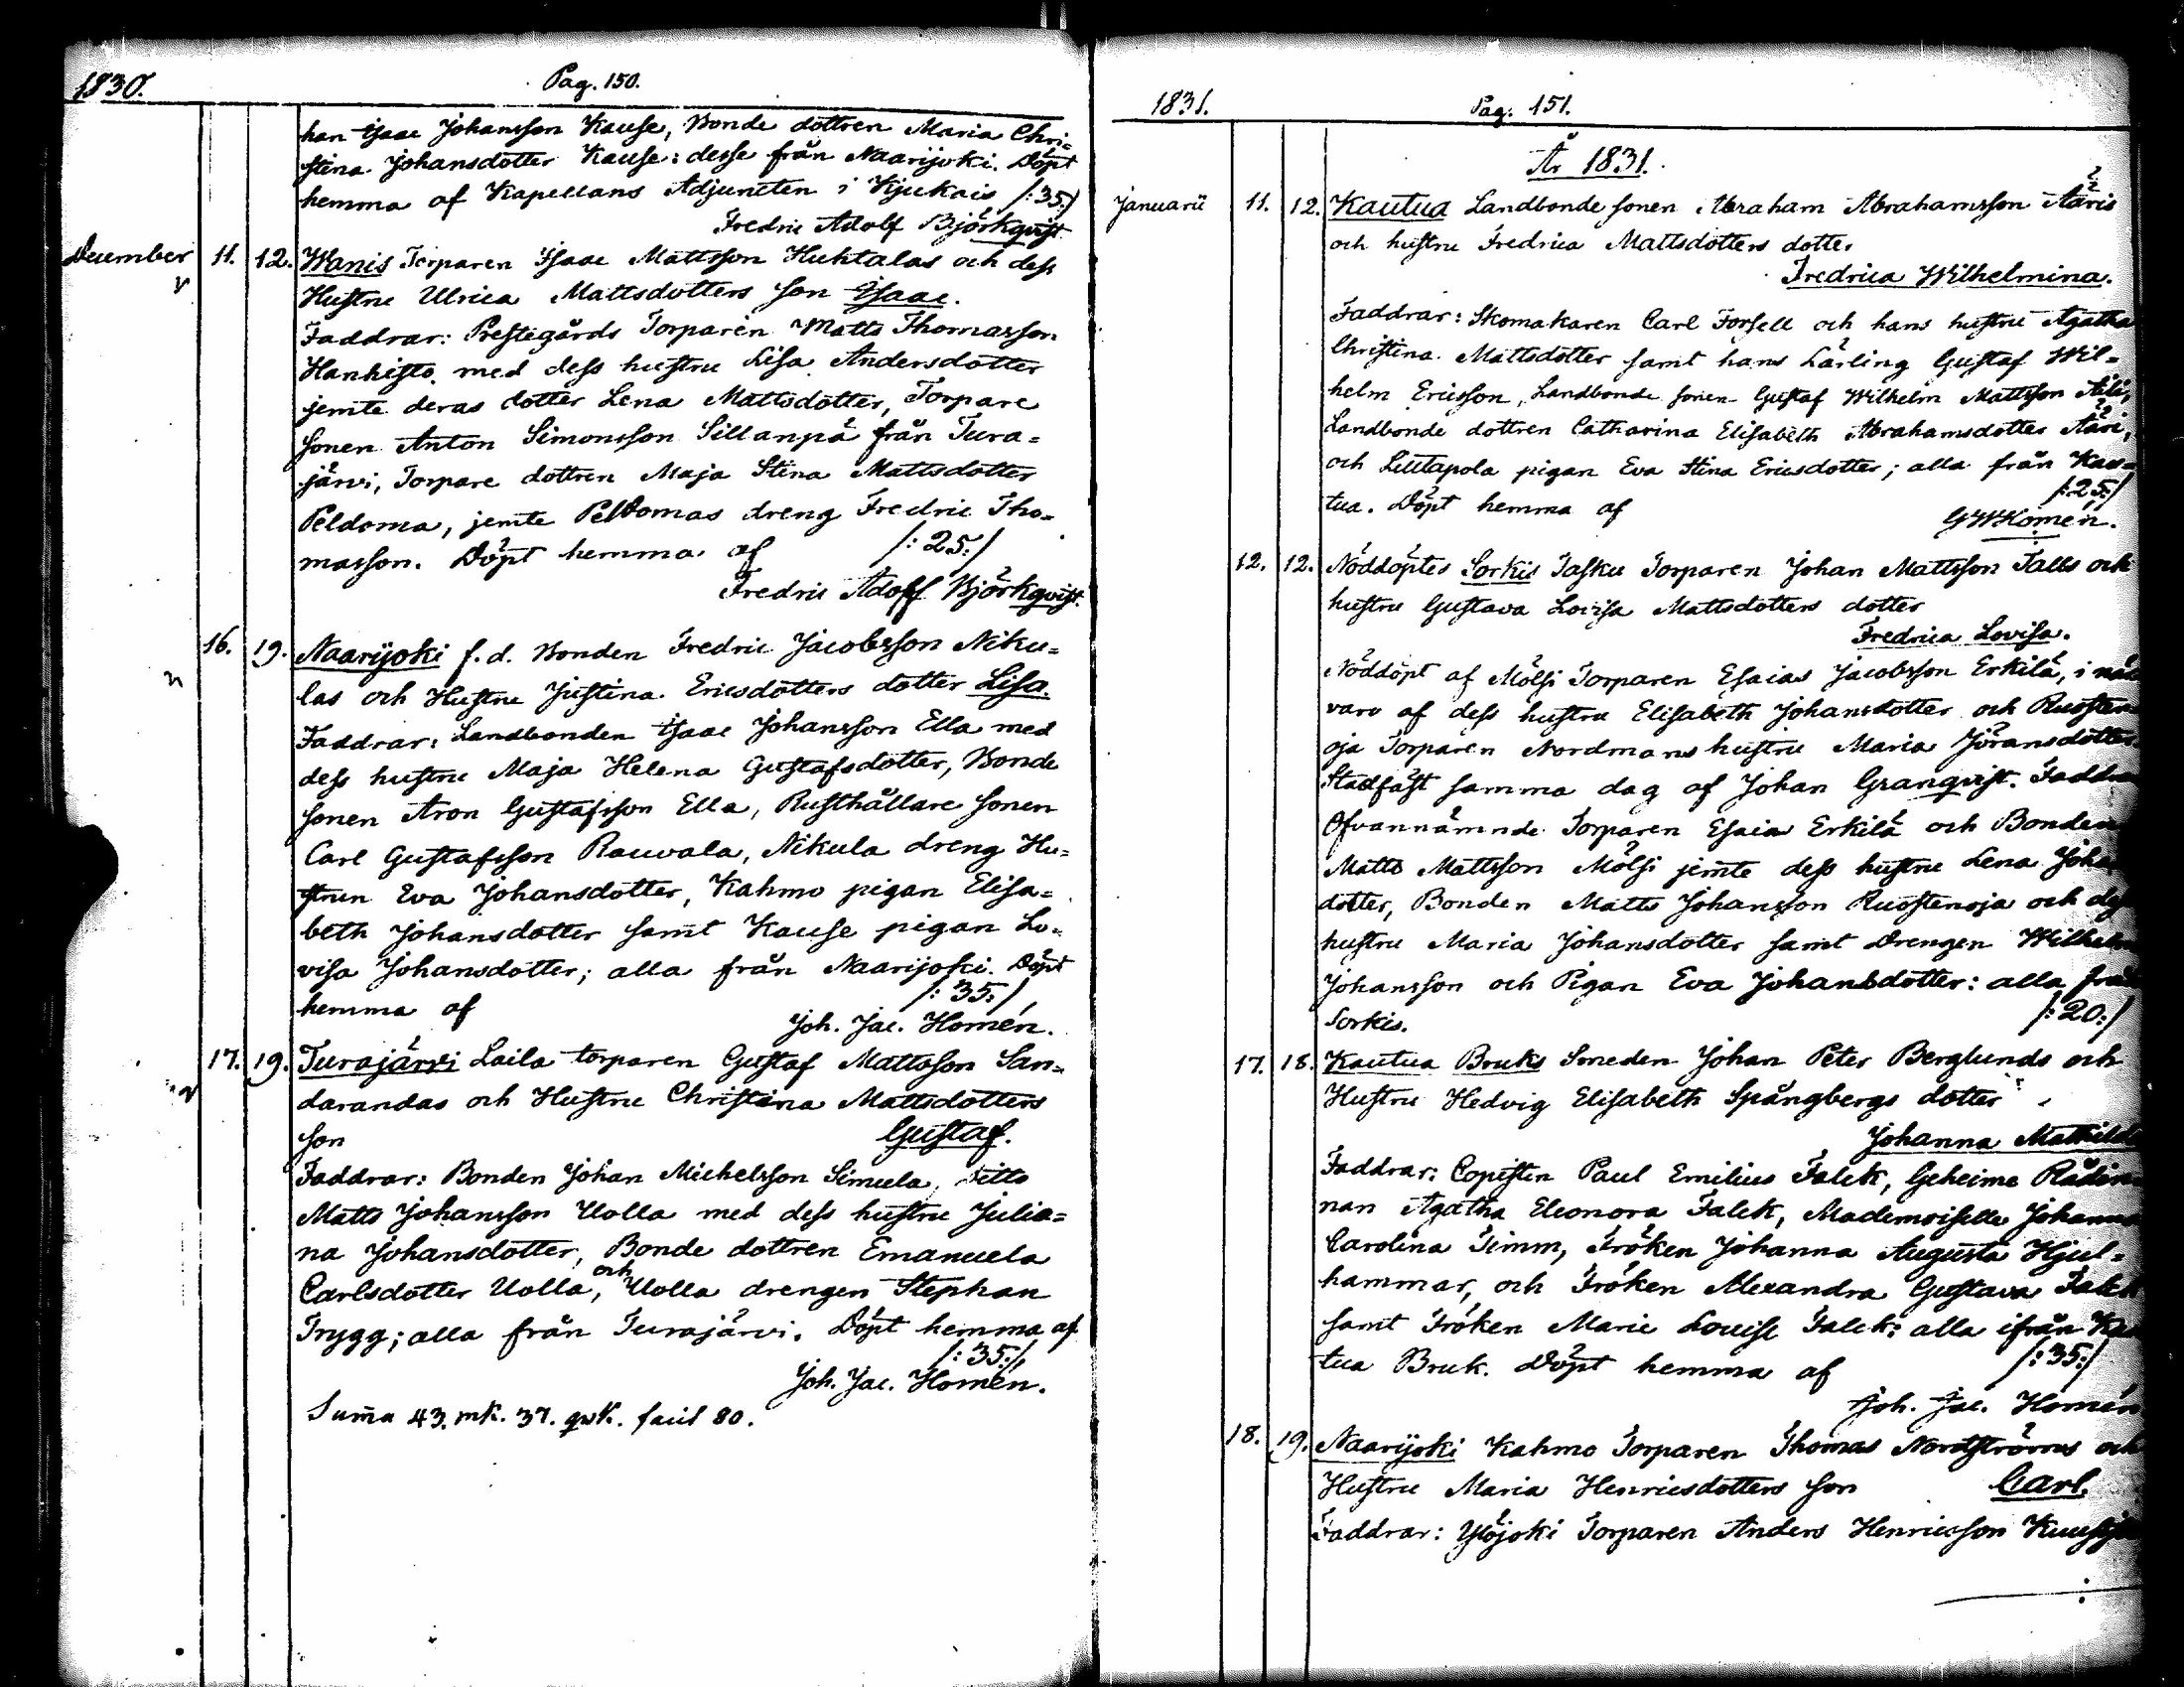 1830.
Pag. 150.
han Isaac Johansson Kause, Bonde dottren Maria Chri=
stina Johansdotter Kause: desse från Naarijoki. Döpt
hemma af Kapellans Adjuncten i Kjukais /:35:/
Fredric Adolf Björkqvist.
December 11. 12. Wanis Torparen Isaac Mattsson Huhtalas och dess
Hustru Ulrica Mattsdotters son Isaac.
Faddrar: Prestegårds Torparen Matts Thomasson
Hankisto med dess hustru Lisa Andersdotter
jemte deras dotter Lena Mattsdotter, Torpare
sonen Anton Simonsson Sillanpä från Tura=
järvi, Torpare dottren Maja Stina Mattsdotter
Peldoma, jemte Peldomas dreng Fredric Tho=
masson. Döpt hemma af /:25:/
Fredric Adolf Björkqvist.
16. 19. Naarijoki f.d. Bonden Fredric Jacobsson Niku=
las och Hustru Justina Ericsdotters dotter Lisa.
Faddrar: Landbonden Isaac Johansson Ella med
dess hustru Maja Helena Gustafsdotter, Bonde
sonen Aron Gustafsson Ella, Rusthållare sonen
Carl Gustafsson Rauvala, Nikula dreng Hu=
strun Eva Johansdotter, Kahmo pigan Elisa=
beth Johansdotter samt Kause pigan Lo=
visa Johansdotter; alla från Naarijoki. Döpt
hemma af /:35:/
Joh. Jac. Homén.
17. 19. Turajärvi Laila torparen Gustaf Mattsson San=
darandas och Hustru Christina Mattsdotters
son Gustaf.
Faddrar: Bonden Johan Michelsson Simula, Ditto
Matts Johansson Uolla med dess hustru Julia=
na Johansdotter, Bonde dottren Emanuela
Carlsdotter Uolla, och Uolla drengen Stephan
Trygg; alla från Turajärvi. Döpt hemma af
/:35:/
Joh. Jac. Homén.
Suma 43. mk. 37. qvk. facit 80.
1831.
Pag. 151.
År 1831.
Januarii 11. 12. Kautua Landbonde sonen Abraham Abrahamsson Ääris
och hustru Fredrica Mattsdotters dotter
Fredrica Wilhelmina.
Faddrar: Skomakaren Carl Forsell och hans hustru Agatha
Christina Mattsdotter samt hans Lärling Gustaf Wil=
helm Ericsson, Landbonde sonen Gustaf Wilhelm Mattsson
Landbonde dottren Catharina Elisabeth Abrahamsdotter Ääri,
och Luutapola pigan Eva Stina Ericsdotter; alla från Kau=
tua. Döpt hemma af /:25:/
GWHomén.
12. 12. Nöddöptes Sorkis Tasku Torparen Johan Mattsson Talls och
hustru Gustava Lovisa Mattsdotters dotter
Fredrica Lovisa.
Nöddöpt af Mölsi Torparen Esaias Jacobsson Erkilä, i när
varo af dess hustru Elisabeth Johansdotter och Ruosten
oja Torparen Nordmans hustru Maria Jöransdotter.
Stadfäst samma dag af Johan Granqvist. Faddr
Ofvannämnde Torparen Esaias Erkilä och Bonden
Matts Mattsson Mölsi jemte dess hustru Lena Joha
dotter, Bonden Matts Johansson Ruostenoja och dess
hustru Maria Johansdotter samt Drengen Wilhelm
Johansson och Pigan Eva Johansdotter: alla från
Sorkis. /:20:/
17. 18. Kautua Bruks Smeden Johan Peter Berglunds och
Hustru Hedvig Elisabeth Spångbergs dotter
Johanna Mathilda
Faddrar: Copisten Paul Emilius Falck, Geheime Rådin
nan Agatha Eleonora Falck, Mademoiselle Johanna
Carolina Timm, Fröken Johanna Augusta Hjul=
hammar, och Fröken Alexandra Gustava Falck
samt Fröken Marie Louise Falck: alla ifrån Kau
tua Bruk. Döpt hemma af /:35:/
Joh. Jac. Homén
18. 19. Naarijoki Kahmo Torparen Thomas Nordströms och
Hustru Maria Henricsdotters son Carl.
Faddrar: Ylöjoki Torparen Anders Henricsson